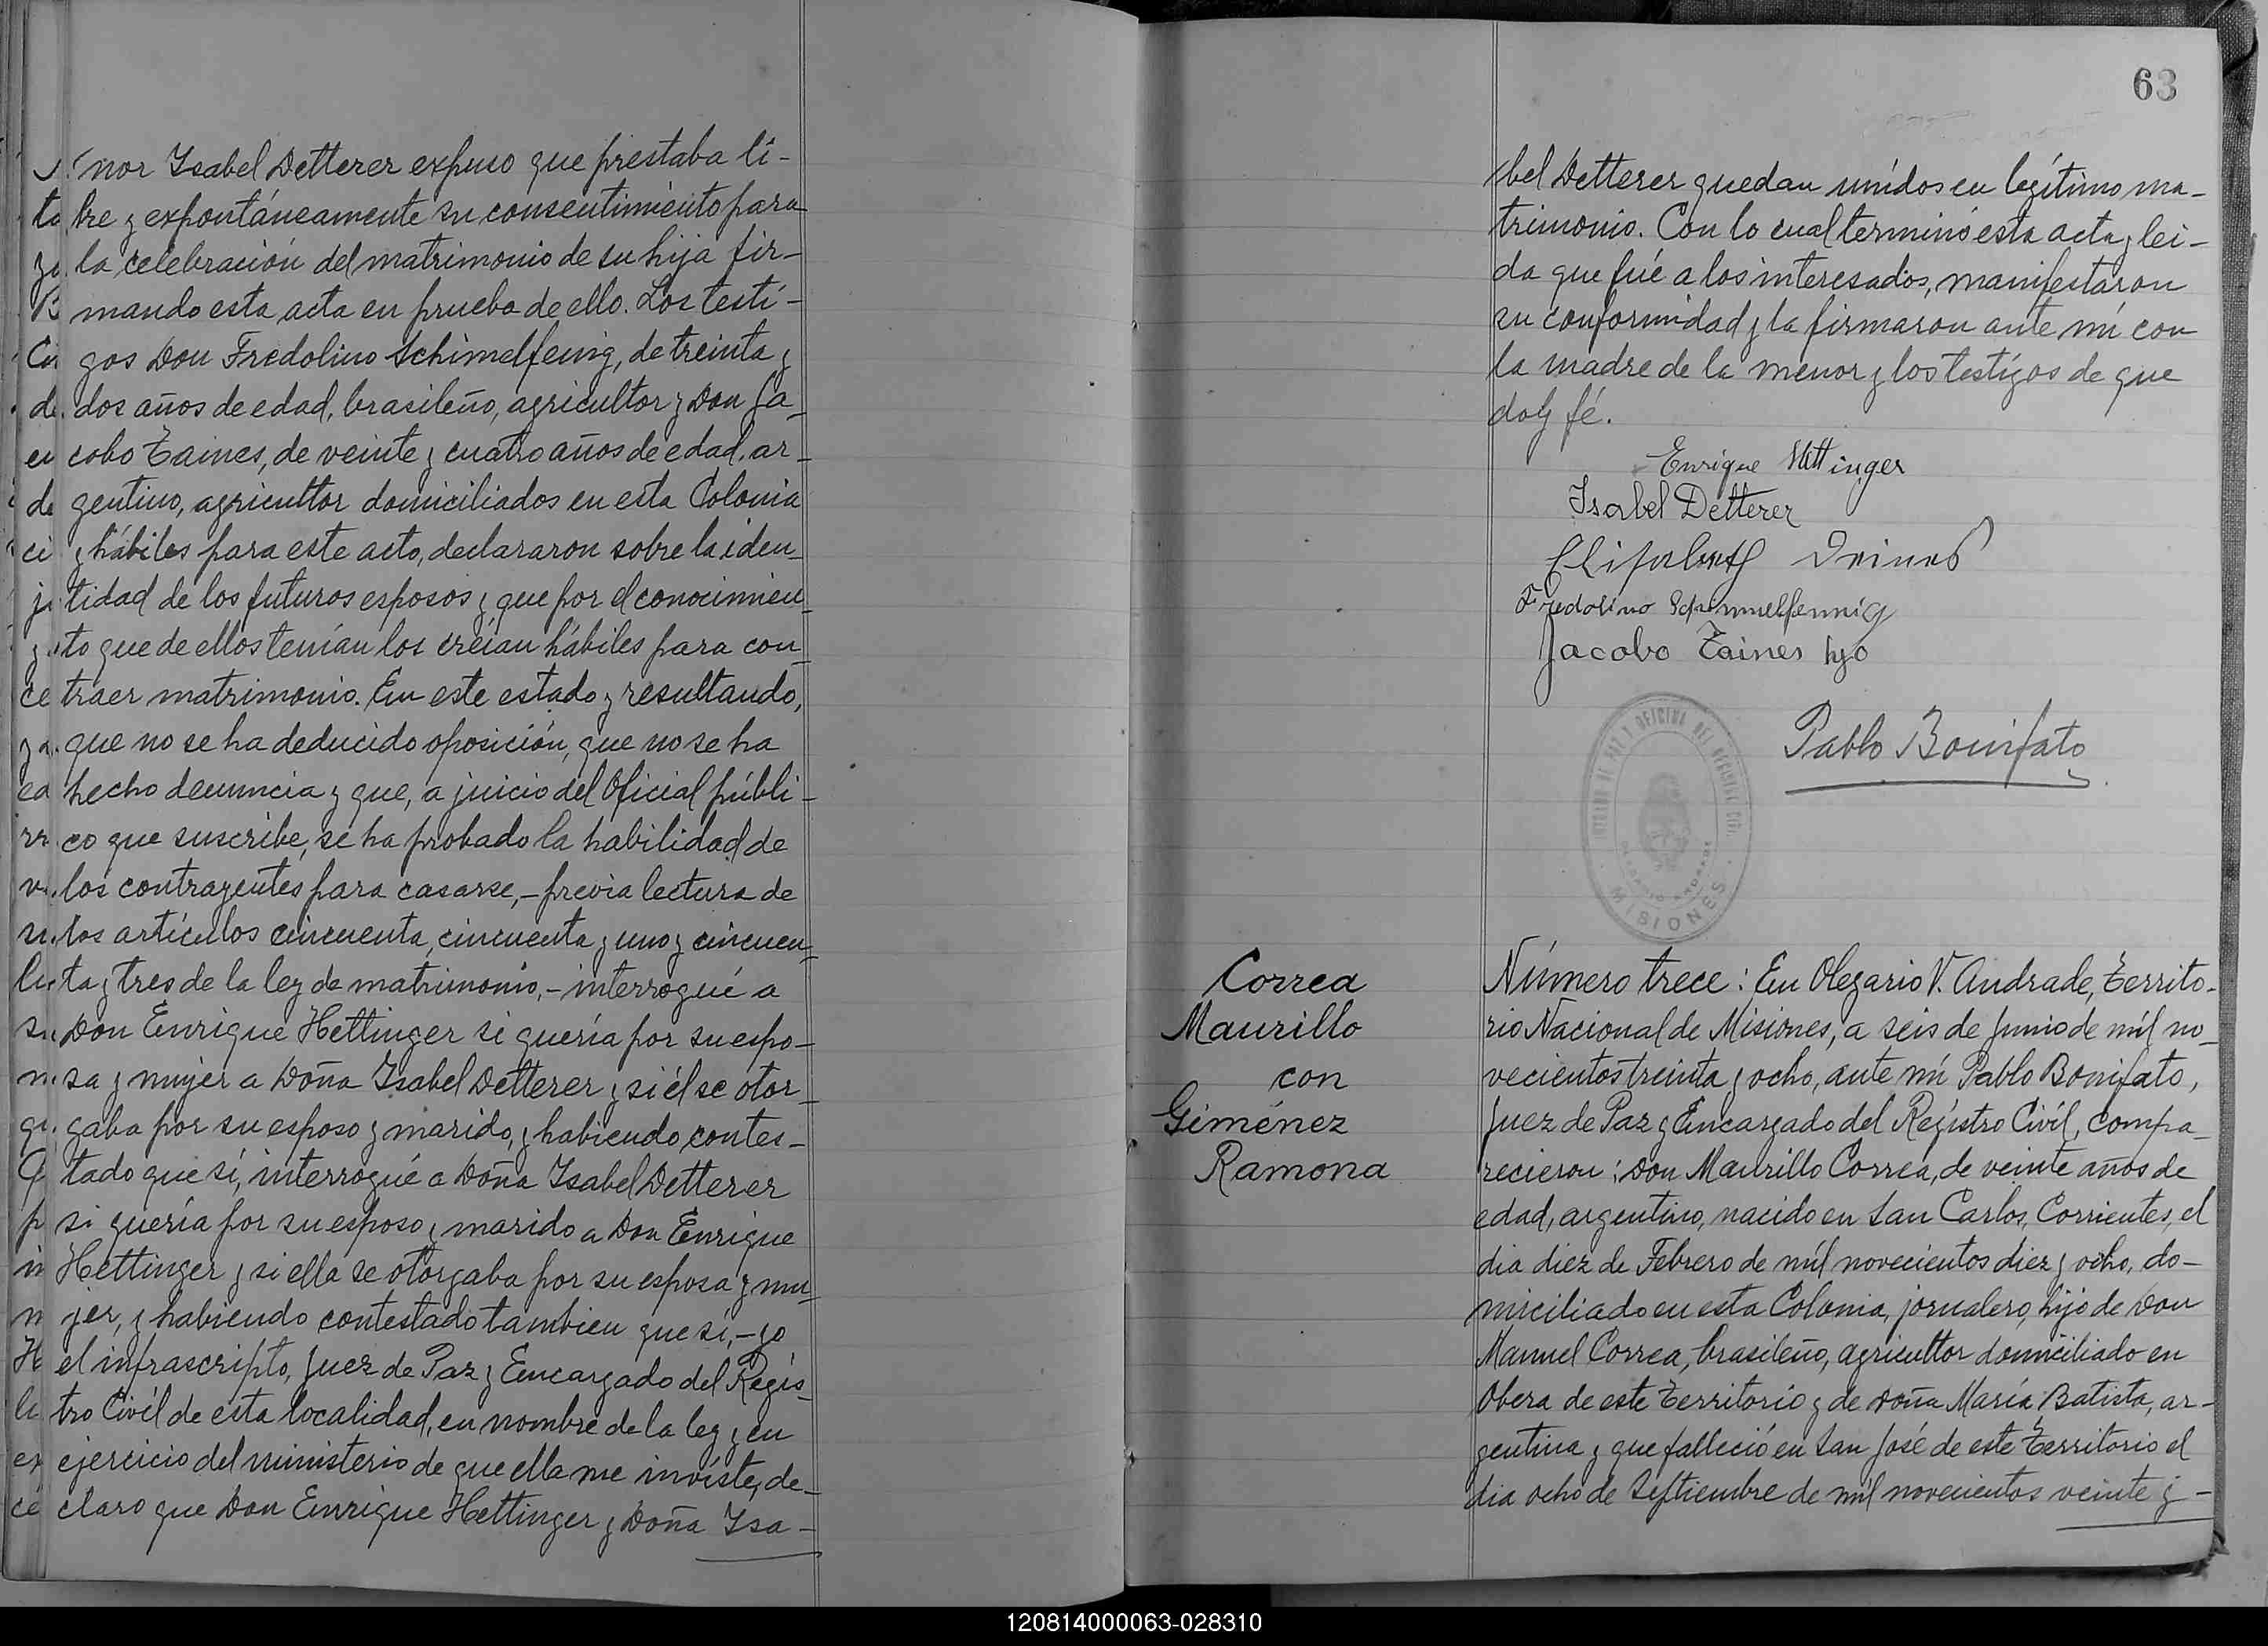 nor Isabel Detterer expuso que prestaba li-
bre y expontáneamente su consentimiento para
la celebración del matrimonio de su hija fir-
mando esta acta en prueba de ello. Los testi-
gos Don Fredolino Schimelfenig, de treinta y
dos años de edad, brasileño, agricultor y Don Ja-
cobo Zaines, de veinte y cuatro años de edad, ar-
gentino, agricultor domiciliados en esta Colonia
y hábiles para este acto, declararon sobre la iden-
tidad de los futuros esposos y que por el conocimien-
to que de ellos tenían los creían hábiles para con-
traer matrimonio. En este estado y resultando,
que no se ha deducido oposición, que no se ha
hecho denuncia y que, a juicio del Oficial públi-
co que suscribe, se ha probado la habilidad de
los contrayentes para casarse,- previa lectura de
los artículos cincuenta, cincuenta y uno y cincuen-
ta y tres de la ley de matrimonio,- interrogué a
Don Enrique Hettinger si quería por su espo-
sa y mujer a Doña Isabel Detterer y si él se otor-
gaba por su esposo y marido, y habiendo contes-
tado que sí, interrogué a Doña Isabel Detterer
si quería por su esposo y marido a Don Enrique
Hettinger y si ella se otorgaba por su esposa y mu-
jer, y habiendo contestado tambien que sí,- yo
el infrascripto, Juez de Paz y Encargado del Regis-
tro Civil de esta localidad, en nombre de la ley y en
ejercicio del ministerio de que ella me inviste, de-
claro que Don Enrique Hettinger y Doña Isa-
63
bel Detterer quedan unidos en legítimo ma-
trimonio. Con lo cual terminó esta acta y lei-
da que fué a los interesados, manifestaron
su conformidad y la firmaron ante mí con
la madre de la menor y los testigos de que
doy fé.
Enrique Hettinger
Isabel Detterer
Fredolino Schimmelfennig
Jacobo Zaines hijo
Pablo Bonifato
MISIONES
Correa
Maurillo
con
Giménez
Ramona
Número trece: En Olegario V. Andrade, Territo-
rio Nacional de Misiones, a seis de Junio de mil no-
vecientos treinta y ocho, ante mí Pablo Bonifato,
Juez de Paz y Encargado del Registro Civil, compa-
recieron: Don Maurillo Correa, de veinte años de
edad, argentino, nacido en San Carlos, Corrientes, el
dia diez de Febrero de mil novecientos diez y ocho, do-
miciliado en esta Colonia, jornalero, hijo de Don
Manuel Correa, brasileño, agricultor domiciliado en
Obera de este Territorio y de Doña María Batista, ar-
gentina y que falleció en San José de este Territorio el
dia ocho de Septiembre de mil novecientos veinte y-
120814000063-028310